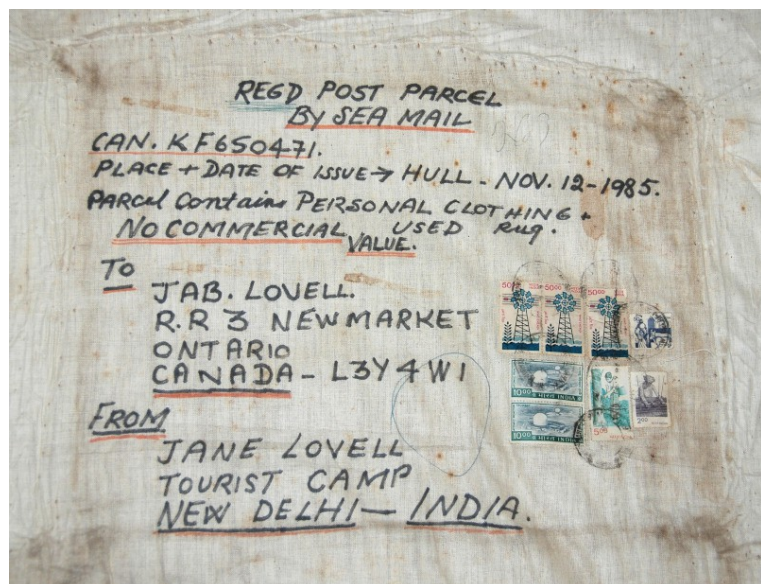 REGD POST PARCEL
By SEA MAIL
CAN. KF650471.
PLACE + DATE OF ISSUE → HULL - NOV. 12-1985.
PARCEL Contains PERSONAL CLOTHING +
NO COMMERCIAL USED Rug.
VALUE.
To
JAB. LOVELL.
R.R 3 NEWMARKET
ONTARIO
CANADA - L3Y4W1
FROM
JANE LOVELL
TOURIST CAMP
NEW DELHI — INDIA.
5000
5000
5000
1000
1000
500
200